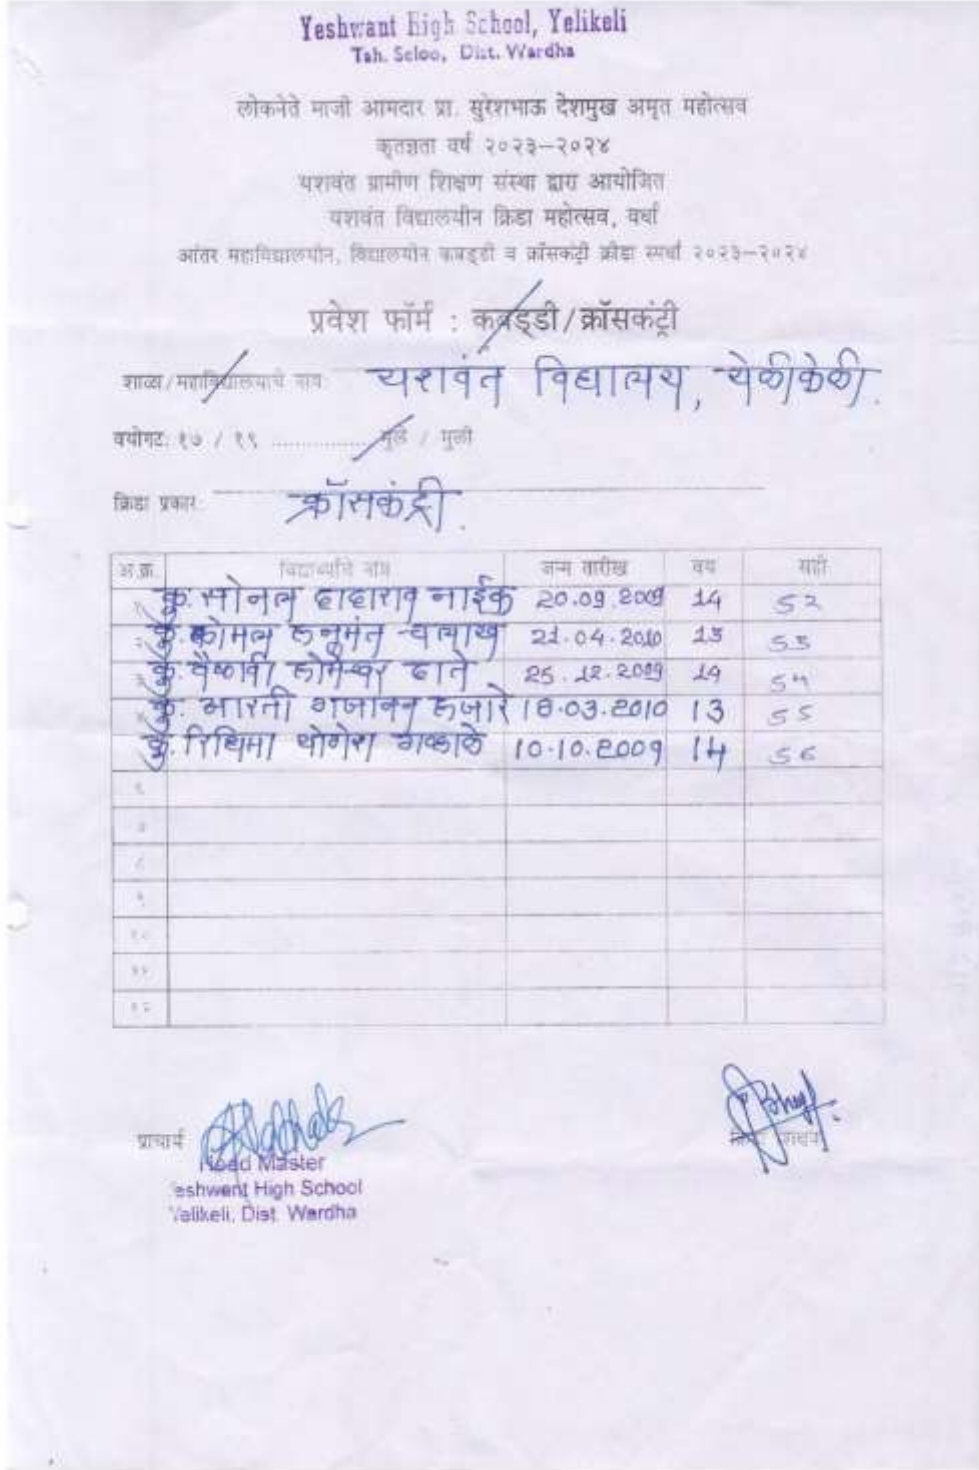 Yeshwant High School, Yelikeli
Tah. Seloo, Dist. Wardha
लोकनेते माजी आमदार प्रा. सुरेशभाऊ देशमुख अमृत महोत्सव
कृतज्ञता वर्ष २०२३–२०२४
यशवंत ग्रामीण शिक्षण संस्था द्वारा आयोजित
यशवंत विद्यालयीन क्रिडा महोत्सव, वर्धा
आंतर महाविद्यालयीन, विद्यालयीन कबड्डी व क्रॉसकंट्री क्रीडा स्पर्धा २०२३–२०२४
प्रवेश फॉर्म : कबड्डी/क्रॉसकंट्री
शाळा/महाविद्यालयाचे नाव: यशवंत विद्यालय, येळीकेळी.
वयोगट: १७ / १९ .................. मुले / मुली
क्रिडा प्रकार: क्रॉसकंट्री.
अ.क्र. विद्यार्थ्याचे नांव जन्म तारीख वय सही
कु. सोनल दादाराव नाईक 20.09.2009 14 52
कु. कोमल हनुमंत वलाख 21.04.2010 13 53
कु. वैष्णवी होमेश्वर दाते 25.12.2009 14 54
कु. आरती गजानन हजारे 18.03.2010 13 55
कु. रिधिमा योगेश गळाळे 10-10.2009 14 56
६
७
८
९
१०
११
१२
प्राचार्य
Head Master
Yeshwant High School
Yelikeli, Dist. Wardha